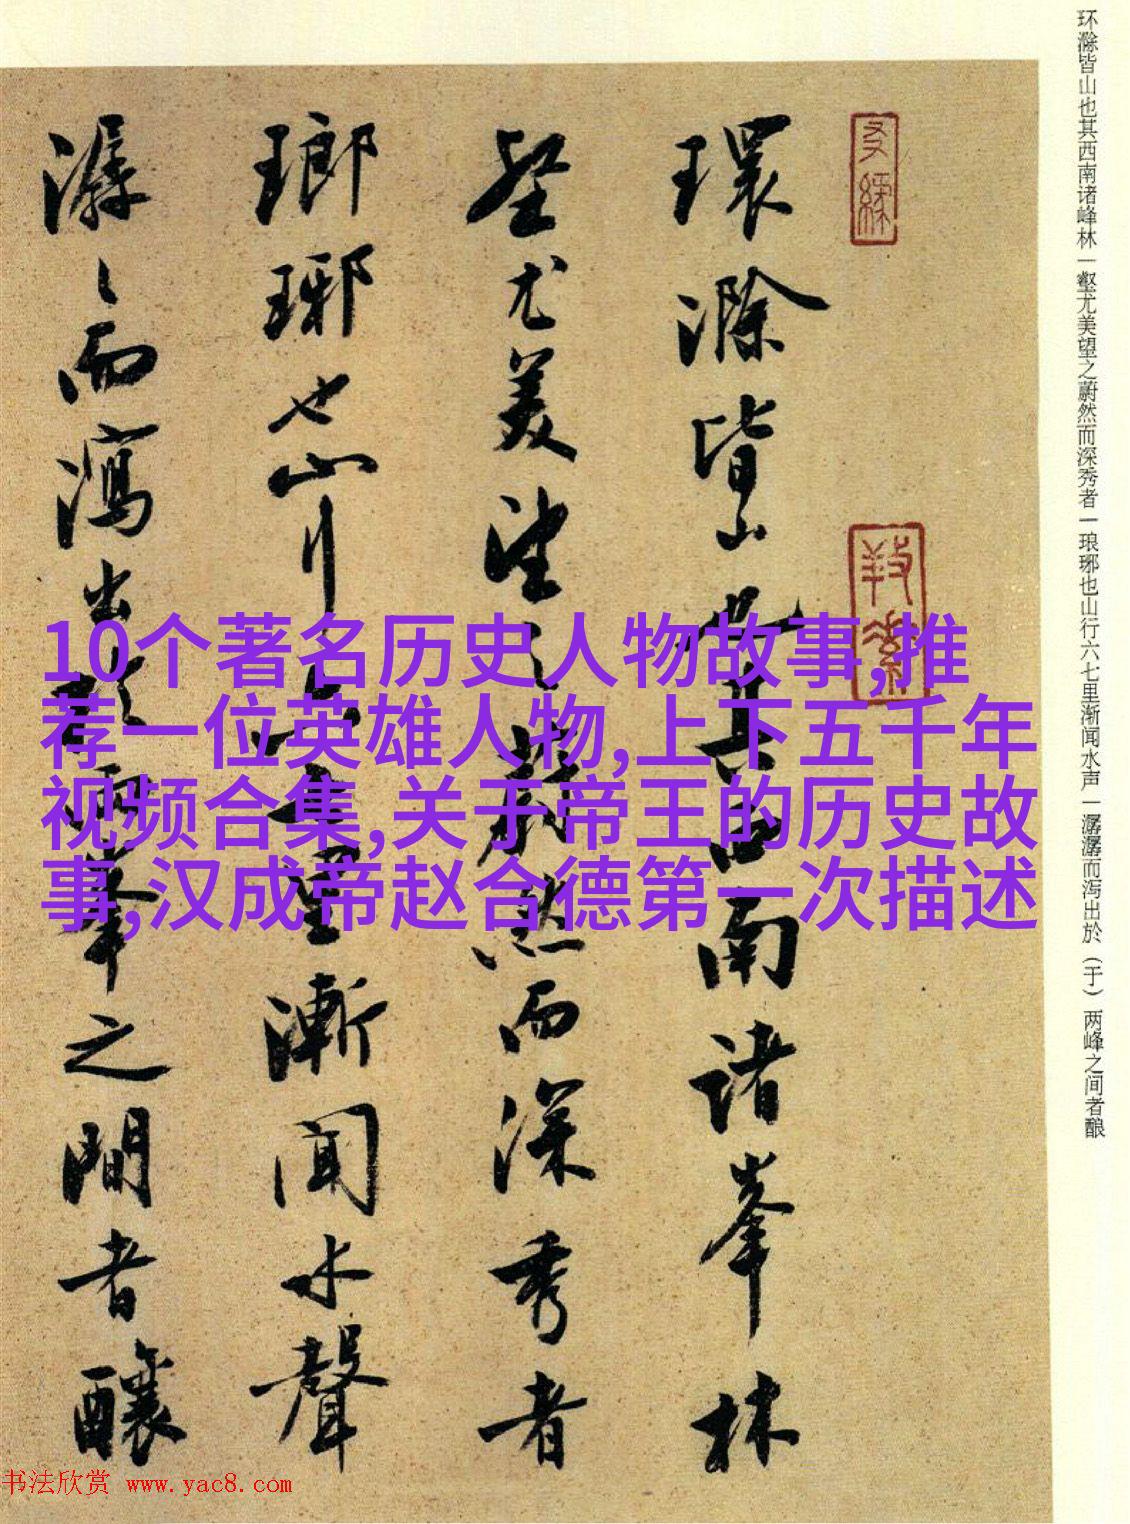 环滁皆山也其西南诸峰林一壑尤美望之蔚然而深秀者一琅琊也山行六七里渐闻水声一潺潺而泻出於（于）两峰之间者酿
環滁皆山也其西南諸峯林
壑尤美望之蔚然而深秀者
瑯琊也山行六七里漸聞水聲
潺〻而瀉出於兩峯之間者釀
10个著名历史人物故事,推
荐一位英雄人物,上下五千年
视频合集,关于帝王的历史故
事,汉成帝赵合德第一次描述
书法欣赏 www.yac8.com